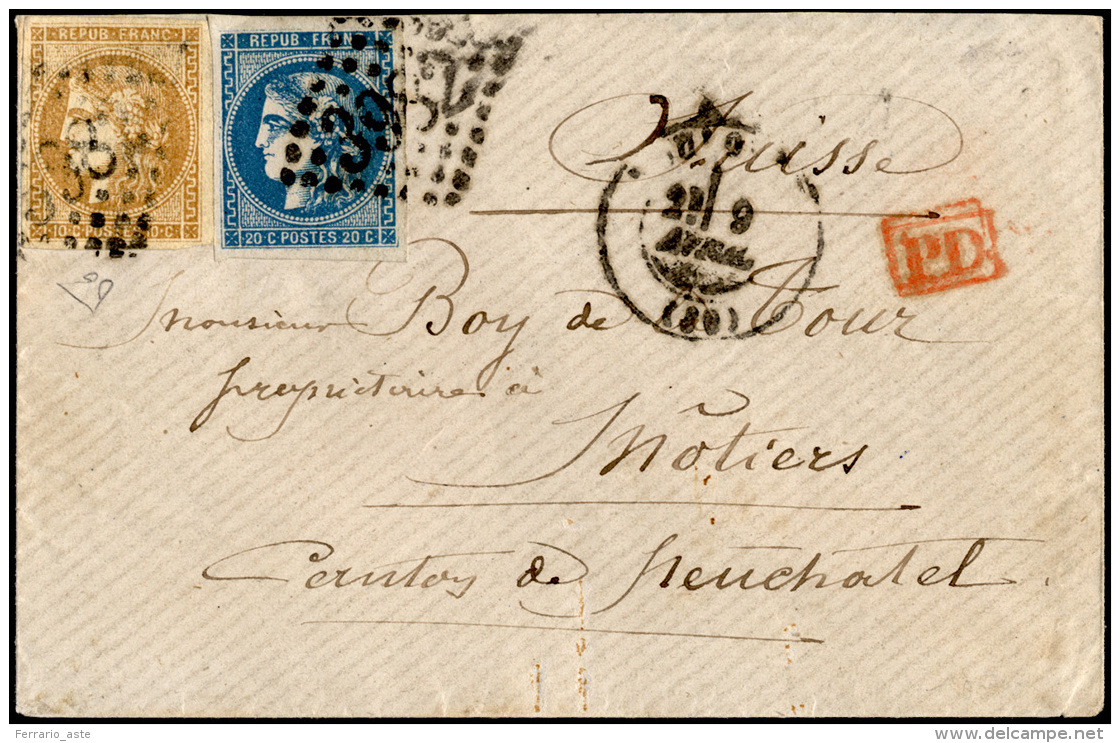 REPUB FRANC
10 C POSTES 10 C
REPUB FRANC
20 C POSTES 20 C
Suisse
9
AVRIL
(30)
P.D.
Monsieur Boy de Tour
propriétaire à
Môtiers
Canton de Neuchatel
Ferrario_aste
delcampe.net